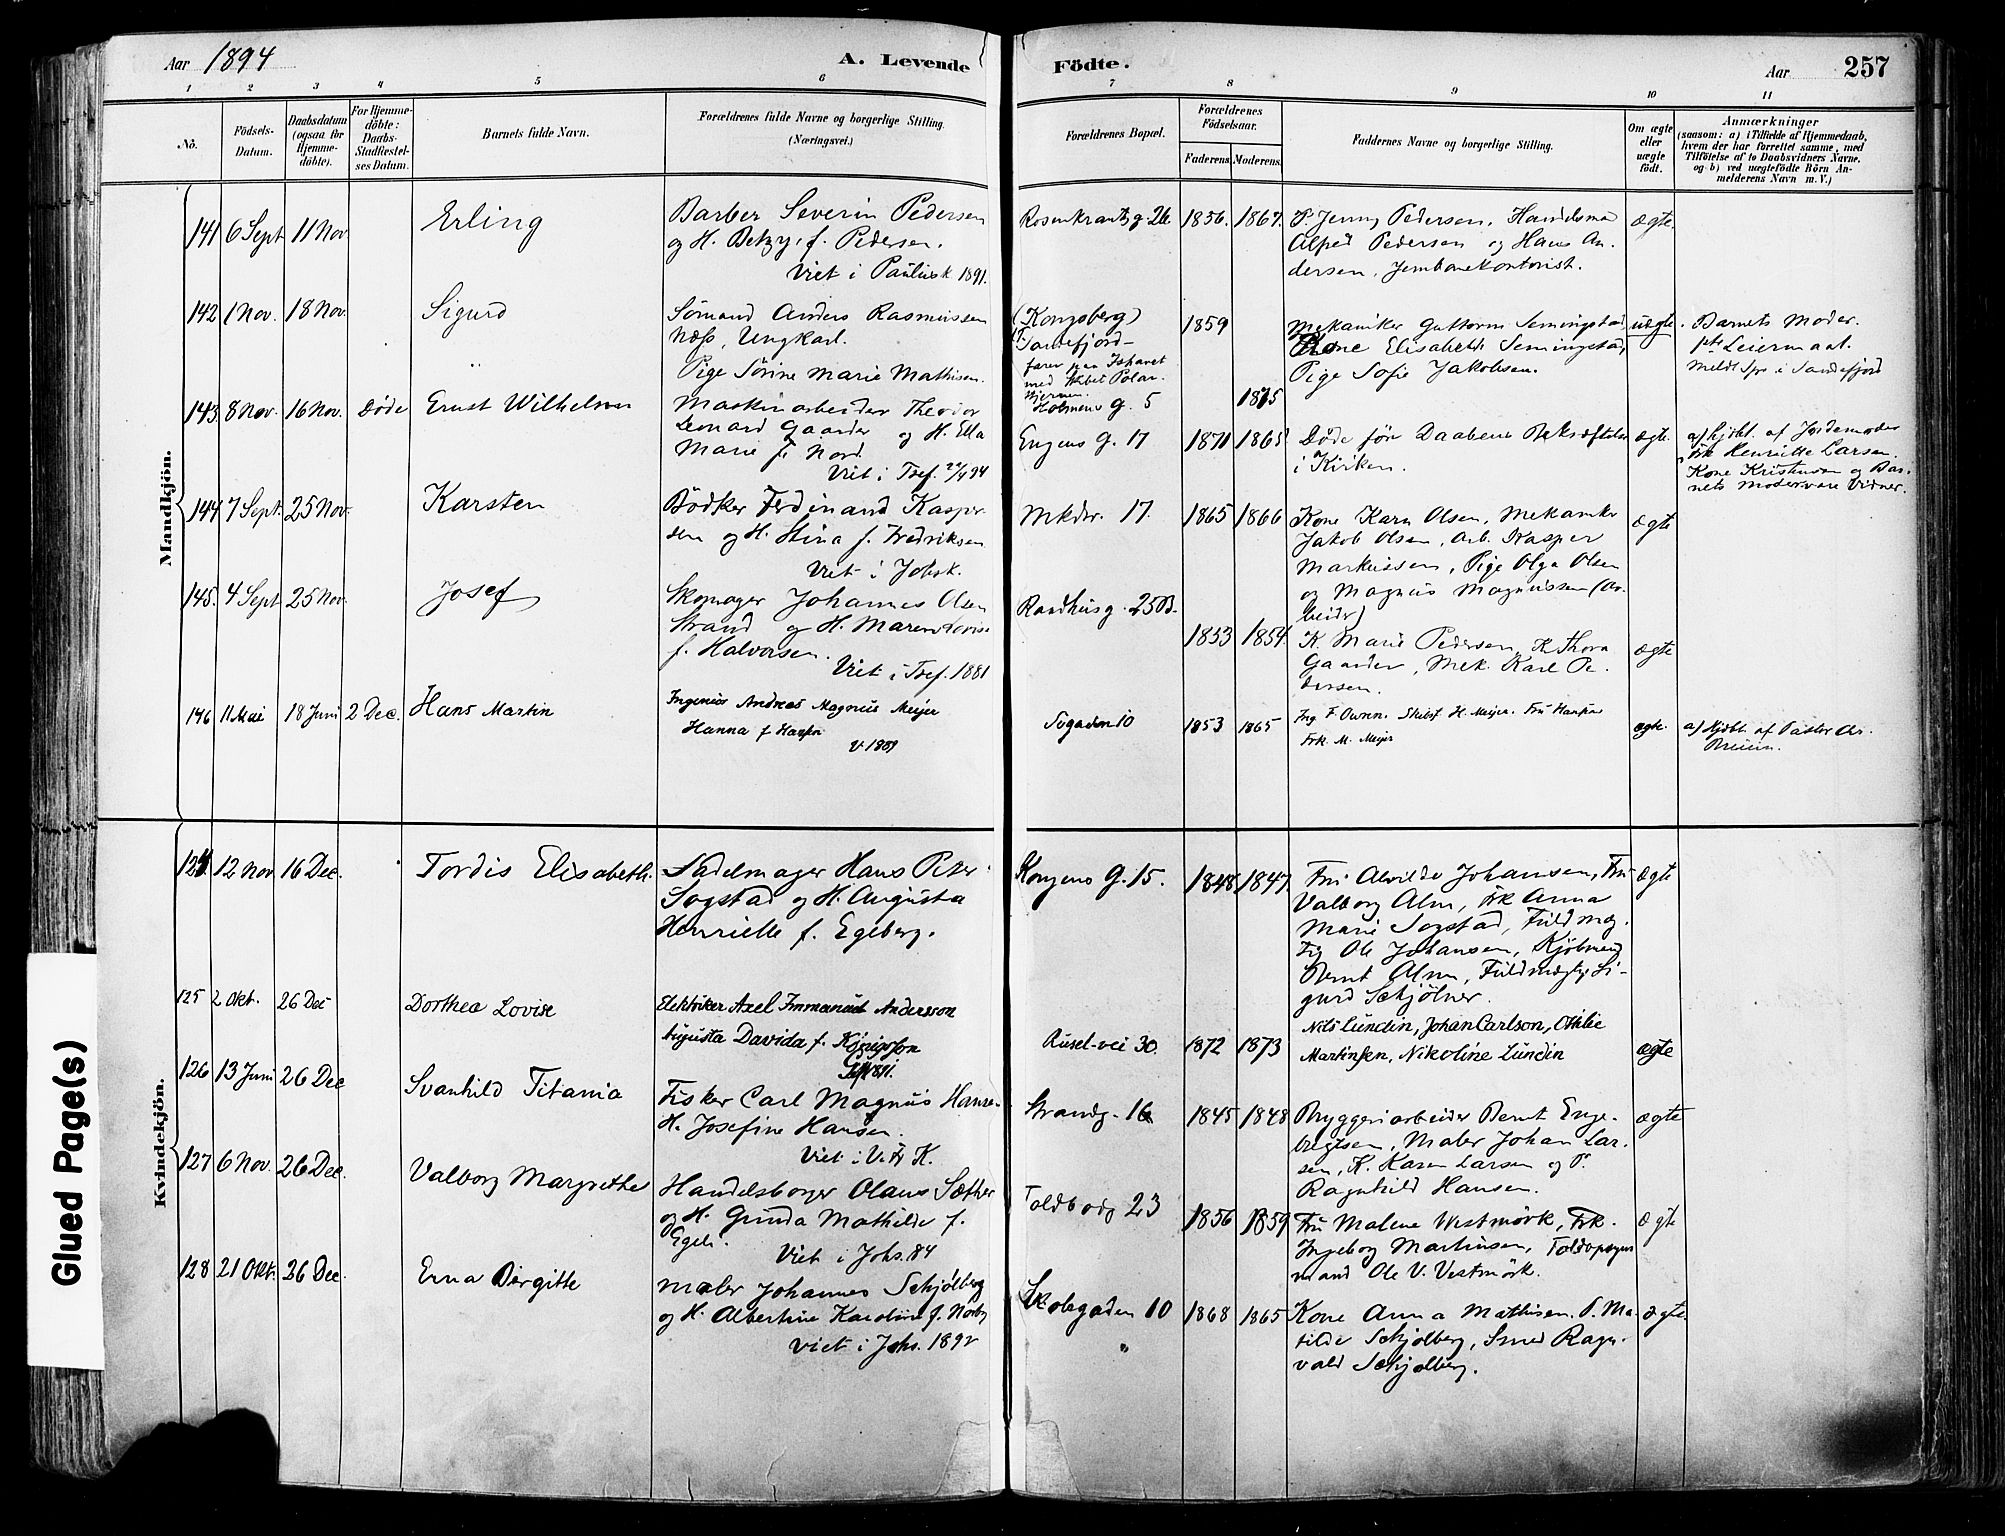 Aar 1894
A. Levende
Födte.
Aar
257
1 2 3 4 5 6 7 8 9 10 11
No.
Födsels-
Datum.
Daabsdatum
(ogsaa for
Hjemme-
döbte).
For Hjemme-
döbte:
Daabs-
Stadfæstel-
ses Datum.
Barnets fulde Navn.
Forældrenes fulde Navne og borgerlige Stilling.
(Næringsvei.)
Forældrenes Bopæl.
Forældrenes
Födselsaar.
Faderens. Moderens.
Faddernes Navne og borgerlige Stilling.
Om ægte
eller
uægte
födt.
Anmærkninger
(saasom: a) i Tilfælde af Hjemmedaab,
hvem der har forrettet samme, med
Tilföielse af to Daabsvidners Navne,
og b) ved uægtefödte Börn An-
melderens Navn m. V.)
Mandkjön.
141 6 Sept 11 Nov
Erling
Barber Severin Pedersen
og H. Betzy, f. Pedersen.
Viet i Paulusk 1891.
Rosenkrantz g. 26.
1856. 1867.
P. Jenny Pedersen, Handelsma
Alfred Pedersen og Hans An-
dersen, Jernbanekontorist.
ægte.
142 1 Nov. 18 Nov.
Sigurd
Sömand Anders Rasmussen
Næss, Ungkarl.
Pige Sörine Marie Mathisen.
(Kongsberg)
Sandefjord
farer paa Ishavet
med Skibet Polar-
stjernen.
Holmens g. 5
1859
1875
Mekaniker Guttorm Semingstad,
Kone Elisabeth Semingstad,
Pige Sofie Jakobsen.
uægte.
Barnets Moder.
Leiermaal.
Meldt Spr i Sandefjord
143. 8 Nov. 16 Nov. Döde
Ernst Wilhelm
Maskinarbeider Theodor
Leonard Gaarder og H. Ella
Marie f. Nord.
Viet i Tref. 22/9 94
Engens G. 17
1871 1865
Döde för Daabens Bekræftelse
i Kirken.
ægte.
a) hjdbt. af Jordemoder
Frk Henriette Larsen.
Kone Kristensen og Bar-
nets Moder vare Vidner.
144 7 Sept. 25 Nov.
Karsten
Bödker Ferdinand Kasper-
sen og H. Stina f. Fredriksen
Viet i Johsk.
Mkdr. 17.
1865 1866
Kone Karn Olsen, Mekaniker
Jakob Olsen, Arb. Kasper
Markussen, Pige Olga Olsen
og Magnus Magnussen (Ar-
beider)
ægte
145. 4 Sept 25 Nov.
Josef
Skomager Johannes Olsen
Strand og H. Maren Lovise
f. Halvorsen.
Viet i Tref. 1881
Raadhusg. 25 B.
1853 1854
K. Marie Pedersen, K. Thora
Gaarder, Mek. Karl Pe-
dersen.
ægte
146 11 Mai 18 Juni 2 Dec.
Hans Martin
Ingeniör Andreas Magnus Meijer
Hanna f
v. 1889
Togaden 10
1853 1865
Ing F Owren. Skibsf H. Meijer. Fru
Frk. M. Meijer
ægte.
a) Hjdbt. af Pastor Chr.
Breien.
Kvindekjön.
124. 12 Nov 16 Dec.
Tordis Elisabeth.
Sadelmager Hans Peter
Sogstad og H. Augusta
Henriette f. Egeberg.
Kongens G. 15.
1848. 1847.
Fru Alvilde Johansen, Fru
Valborg Alm, Frk Anna
Marie Sogstad, Fuldmæg-
tig Ole Johansen, Kjöbmand
Bernt Alm, Fuldmægtig Si-
gurd Schjölner.
ægte
125 2 Okt. 26 Dec
Dorthea Lovise
Elektriker Axel Immanuel Andersson
Augusta Davida f. Königsson
1891.
Rusel-vei 30.
1872 1873
Nils Lundin, Johan Carlson, Othilie
Martinsen, Nikoline Lundin
ægte
126 13 Juni 26 Dec
Svanhild Titania
Fisker Carl Magnus Hansen
H. Josefine Hansen.
Viet i V. Fr K.
Strandg. 16
1845 1848
Bryggeriarbeider Bernt Enge-
bregtsen, Maler Johan Lar-
sen, K. Karen Larsen og P.
Ragnhild Hansen.
ægte
127 6 Nov. 26 Dec.
Valborg Margrethe
Handelsborger Olaus Sæther
og H. Gunda Mathilde f.
Egeli.
Viet i Johs. 84
Toldbodg 23
1856 1859
Fru Malene Westmörk, Frk.
Ingeborg Martinsen, Toldopsyns
mand Ole V. Vestmörk.
ægte
128 21 Okt. 26 Dec.
Erna Birgitte
Maler Johannes Schjölberg
og H. Albertine Karoline f. Norby
viet i Johs. 1892
Skolegaden 10
"
1868 1865
Kone Anna Mathisen. P. Ma-
tilde Schjölberg, Smed Ragn-
vald Schjölberg.
ægte.
Glued Page(s)